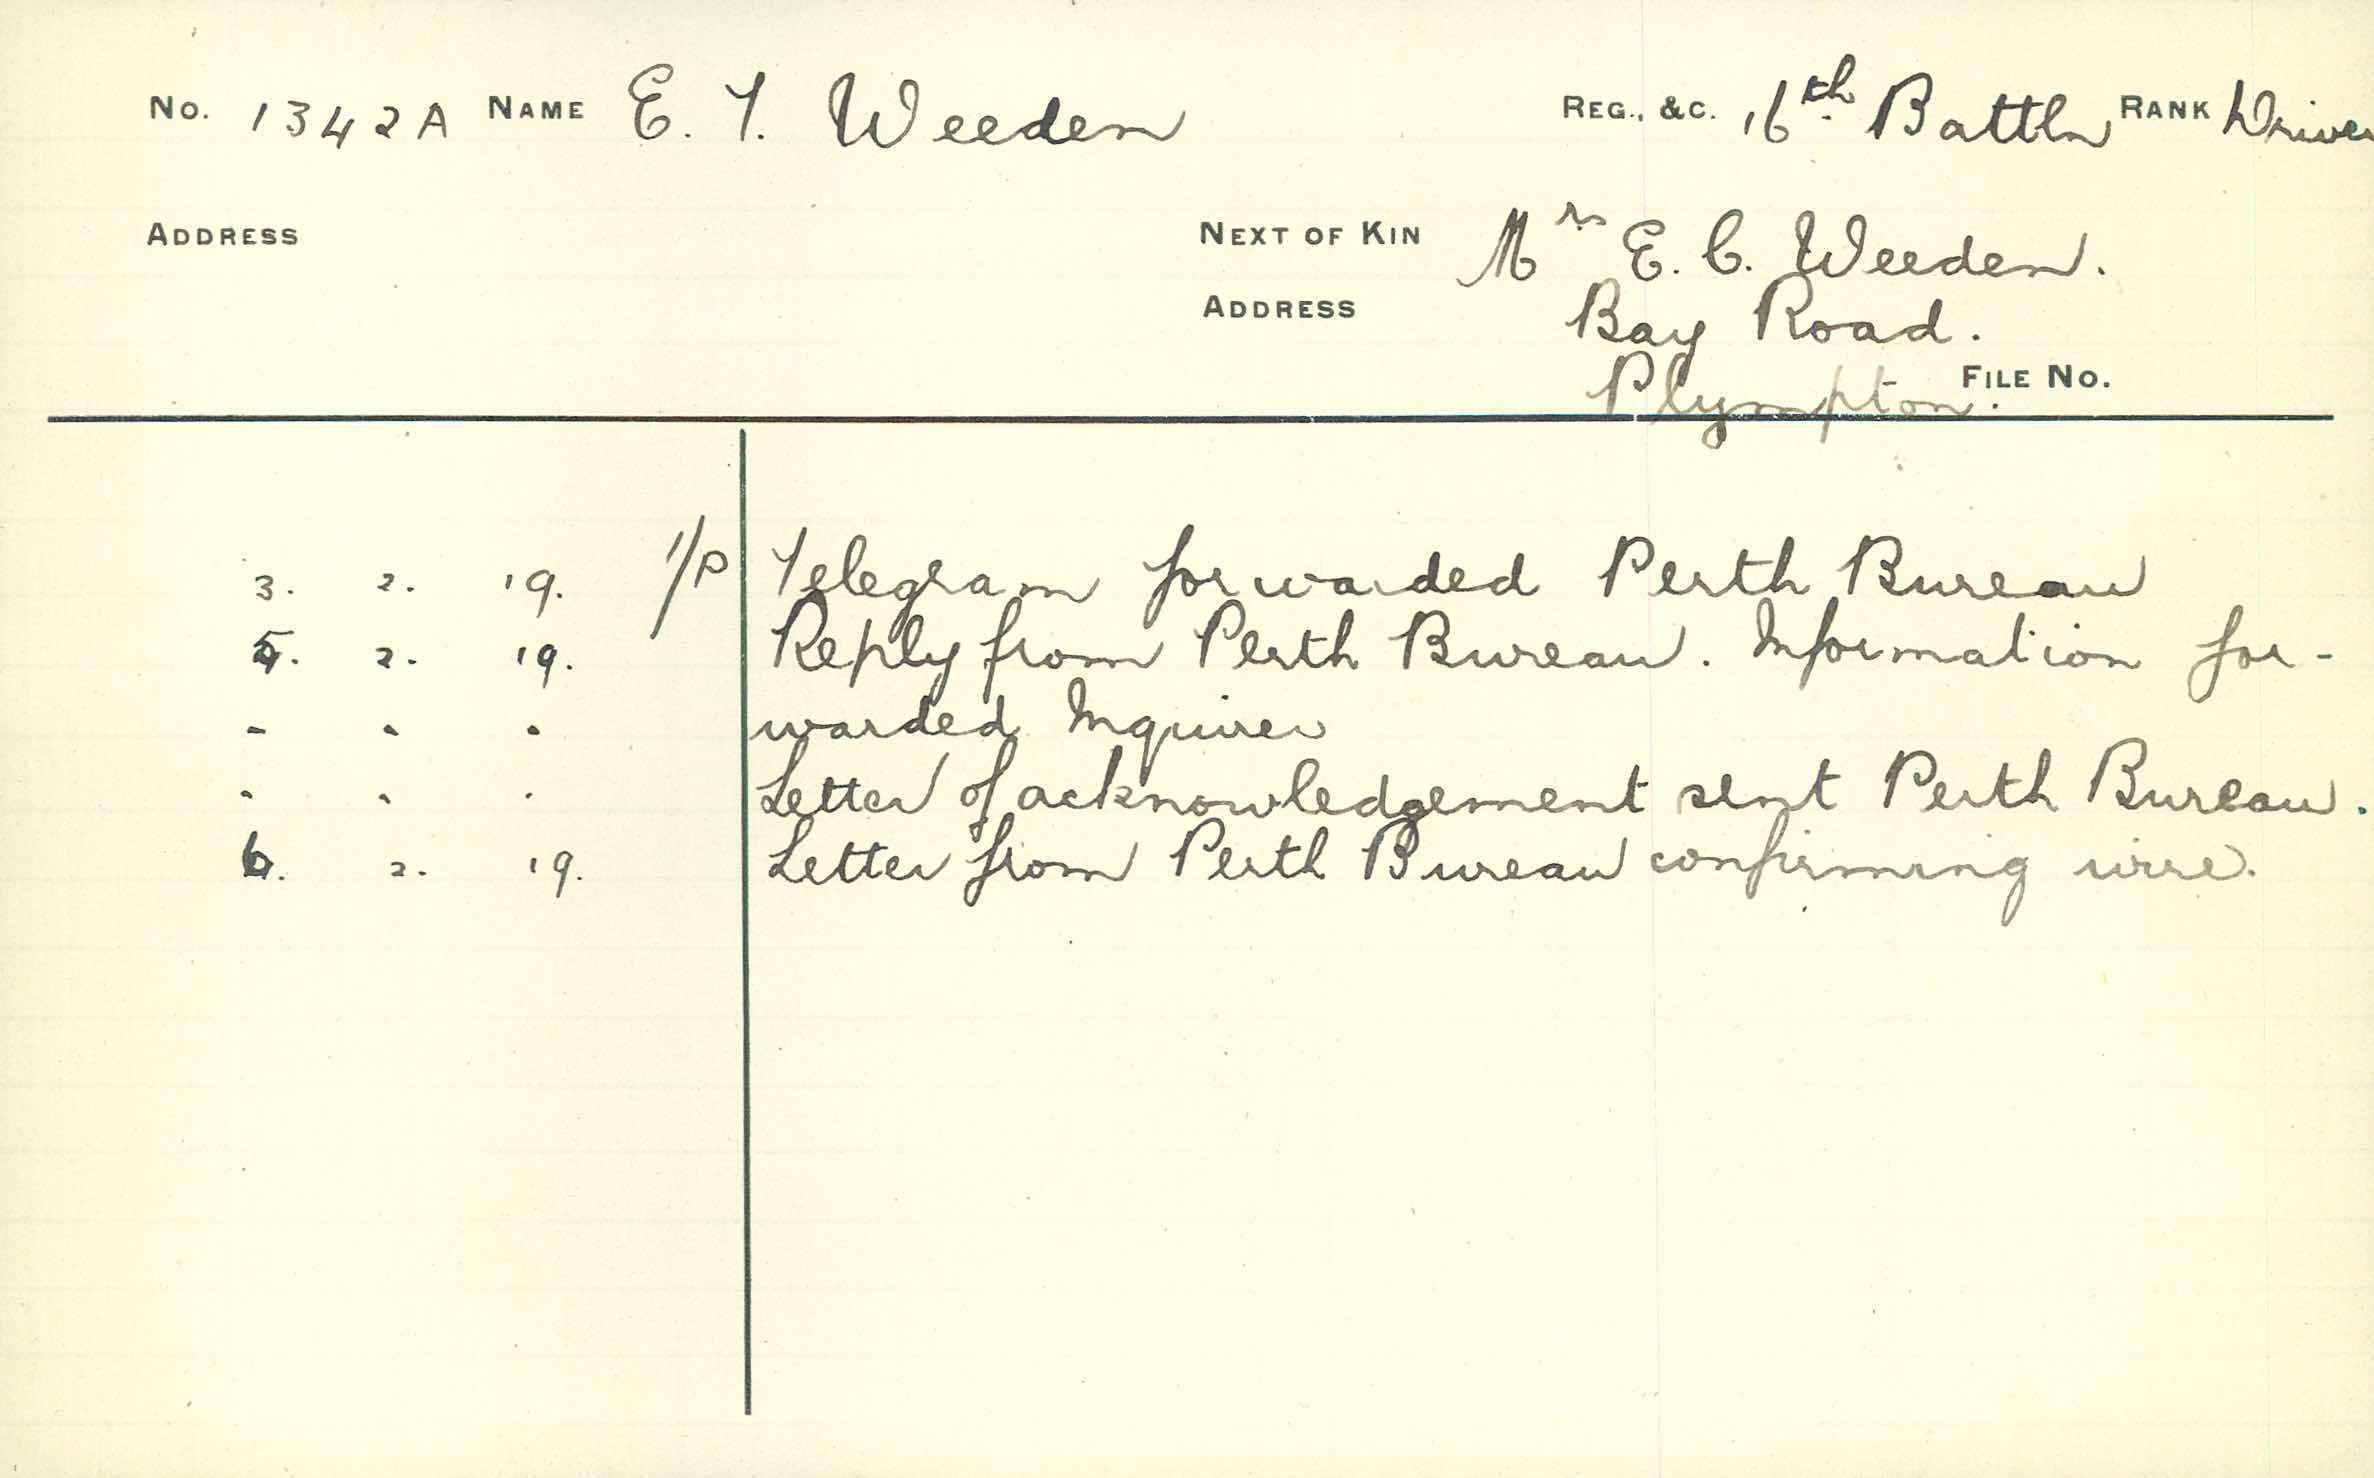 No. 1342A Name E. T. Weeden Reg., &c. 16th Battln Rank Driver
Address Next of Kin Mrs E. C. Weeden.
Address Bay Road.
Plympton. File No.
3. 2. 19. Telegram forwarded Perth Bureau
5. 2. 19. Reply from Perth Bureau. Information for-
" " " warded Inquirer
" " " Letter of acknowledgement sent Perth Bureau.
6. 2. 19. Letter from Perth Bureau confirming wire.